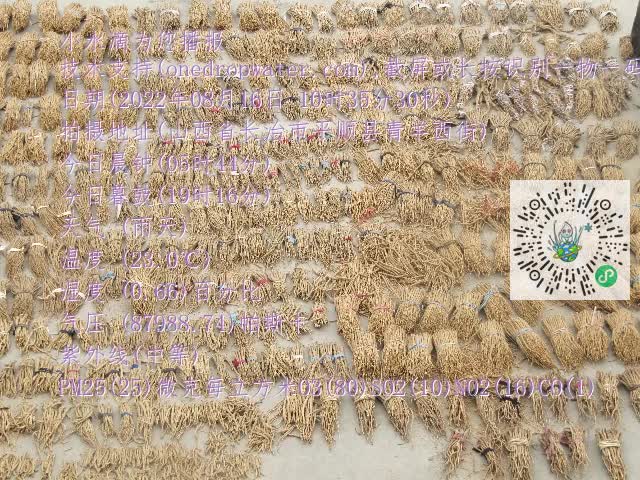 小水滴为您播报
技术支持(onedropwater.com) 截屏或长按识别一物一码
日期(2022年08月16日 10时35分30秒)
拍摄地址(山西省长治市平顺县青羊西街)
今日晨钟(05时44分)
今日暮鼓(19时16分)
天气 (雨天)
温度 (23.0℃)
湿度 (0.66)百分比
气压 (87988.74)帕斯卡
紫外线(中等)
PM25(25)微克每立方米O3(80)SO2(10)NO2(16)CO(1)